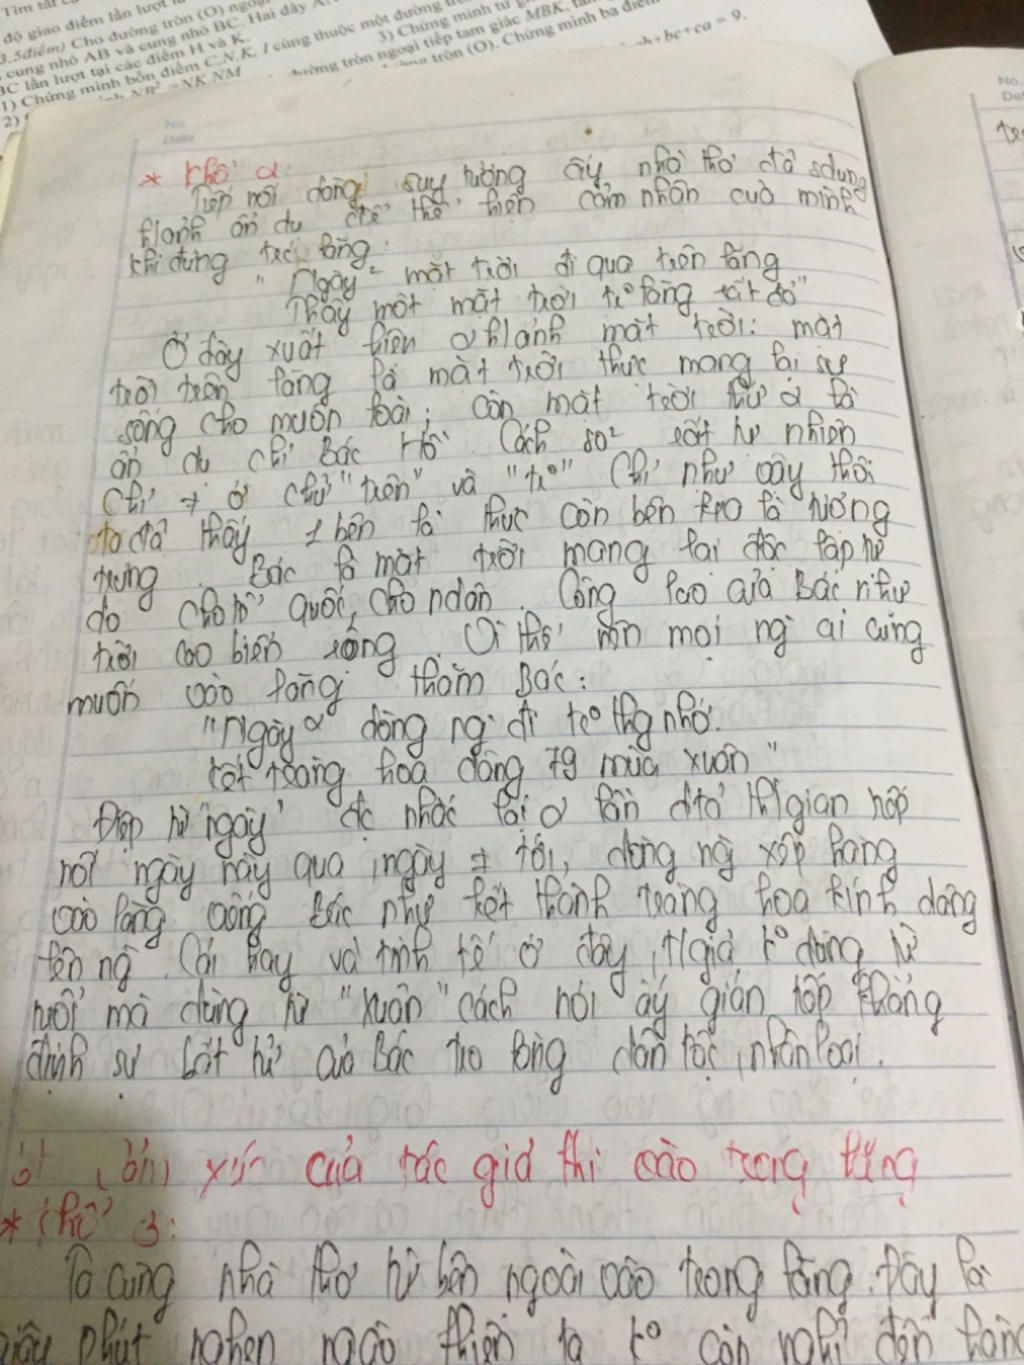 độ giao điểm lần lượt
3,5điểm) Cho đường tròn (O)
cung nhỏ AB và cung nhỏ BC. Hai dây
BC lần lượt tại các điểm H và K.
1) Chứng minh bốn điểm C,N,K, I cùng thuộc một đường
3) Chứng minh tứ
2)
NK.NM
đường tròn ngoại tiếp tam giác MBK,
tròn (O). Chứng minh ba điểm
+ bc + ca = 9.
No.
Date
No.
* Khổ 2:
Tiếp nối dòng suy tưởng ấy nhà thơ đã sdụng
h/ảnh ẩn dụ để thể hiện cảm nhận của mình
khi đứng trc lăng:
"Ngày² mặt trời đi qua trên lăng
Thấy một mặt trời tr° lăng rất đỏ"
Ở đây xuất hiện 2 h/ảnh mặt trời: mặt
trời trên lăng là mặt trời thực mang lại sự
sống cho muôn loài; còn mặt trời thứ 2 là
ẩn dụ chỉ Bác Hồ. Cách so² rất tự nhiên
chỉ ≠ ở chữ "trên" và "tr°" Chỉ như vậy thôi
ta đã thấy 1 bên là thực còn bên kia là tượng
trưng. Bác là mặt trời mang lại độc lập tự
do cho tổ quốc, cho ndân. Công lao của Bác như
trời cao biển rộng. Vì thế nên mọi ng ai cũng
muốn vào lăng thăm Bác:
"Ngày² dòng ng đi tr° thg nhớ.
Kết tràng hoa dâng 79 mùa xuân"
Điệp từ "ngày" đc nhắc lại 2 lần đtả th/gian nối
nối ngày này qua ngày ≠ tới, dòng ng xếp hàng
vào lăng viếng Bác như kết thành tràng hoa kính dâng
lên ng. Cái hay và tinh tế ở đây, t/giả k° dùng từ
tuổi mà dùng từ "xuân" cách nói ấy gián tiếp khẳng
định sự bất tử của Bác tro lòng dân tộc, nhân loại.
xúc của tác giả khi vào trong lăng
* Khổ 3:
Ta cùng nhà thơ từ bên ngoài vào trong lăng. Đây là
giây phút nghẹn ngào khiến ta k° còn nghĩ đến hàng